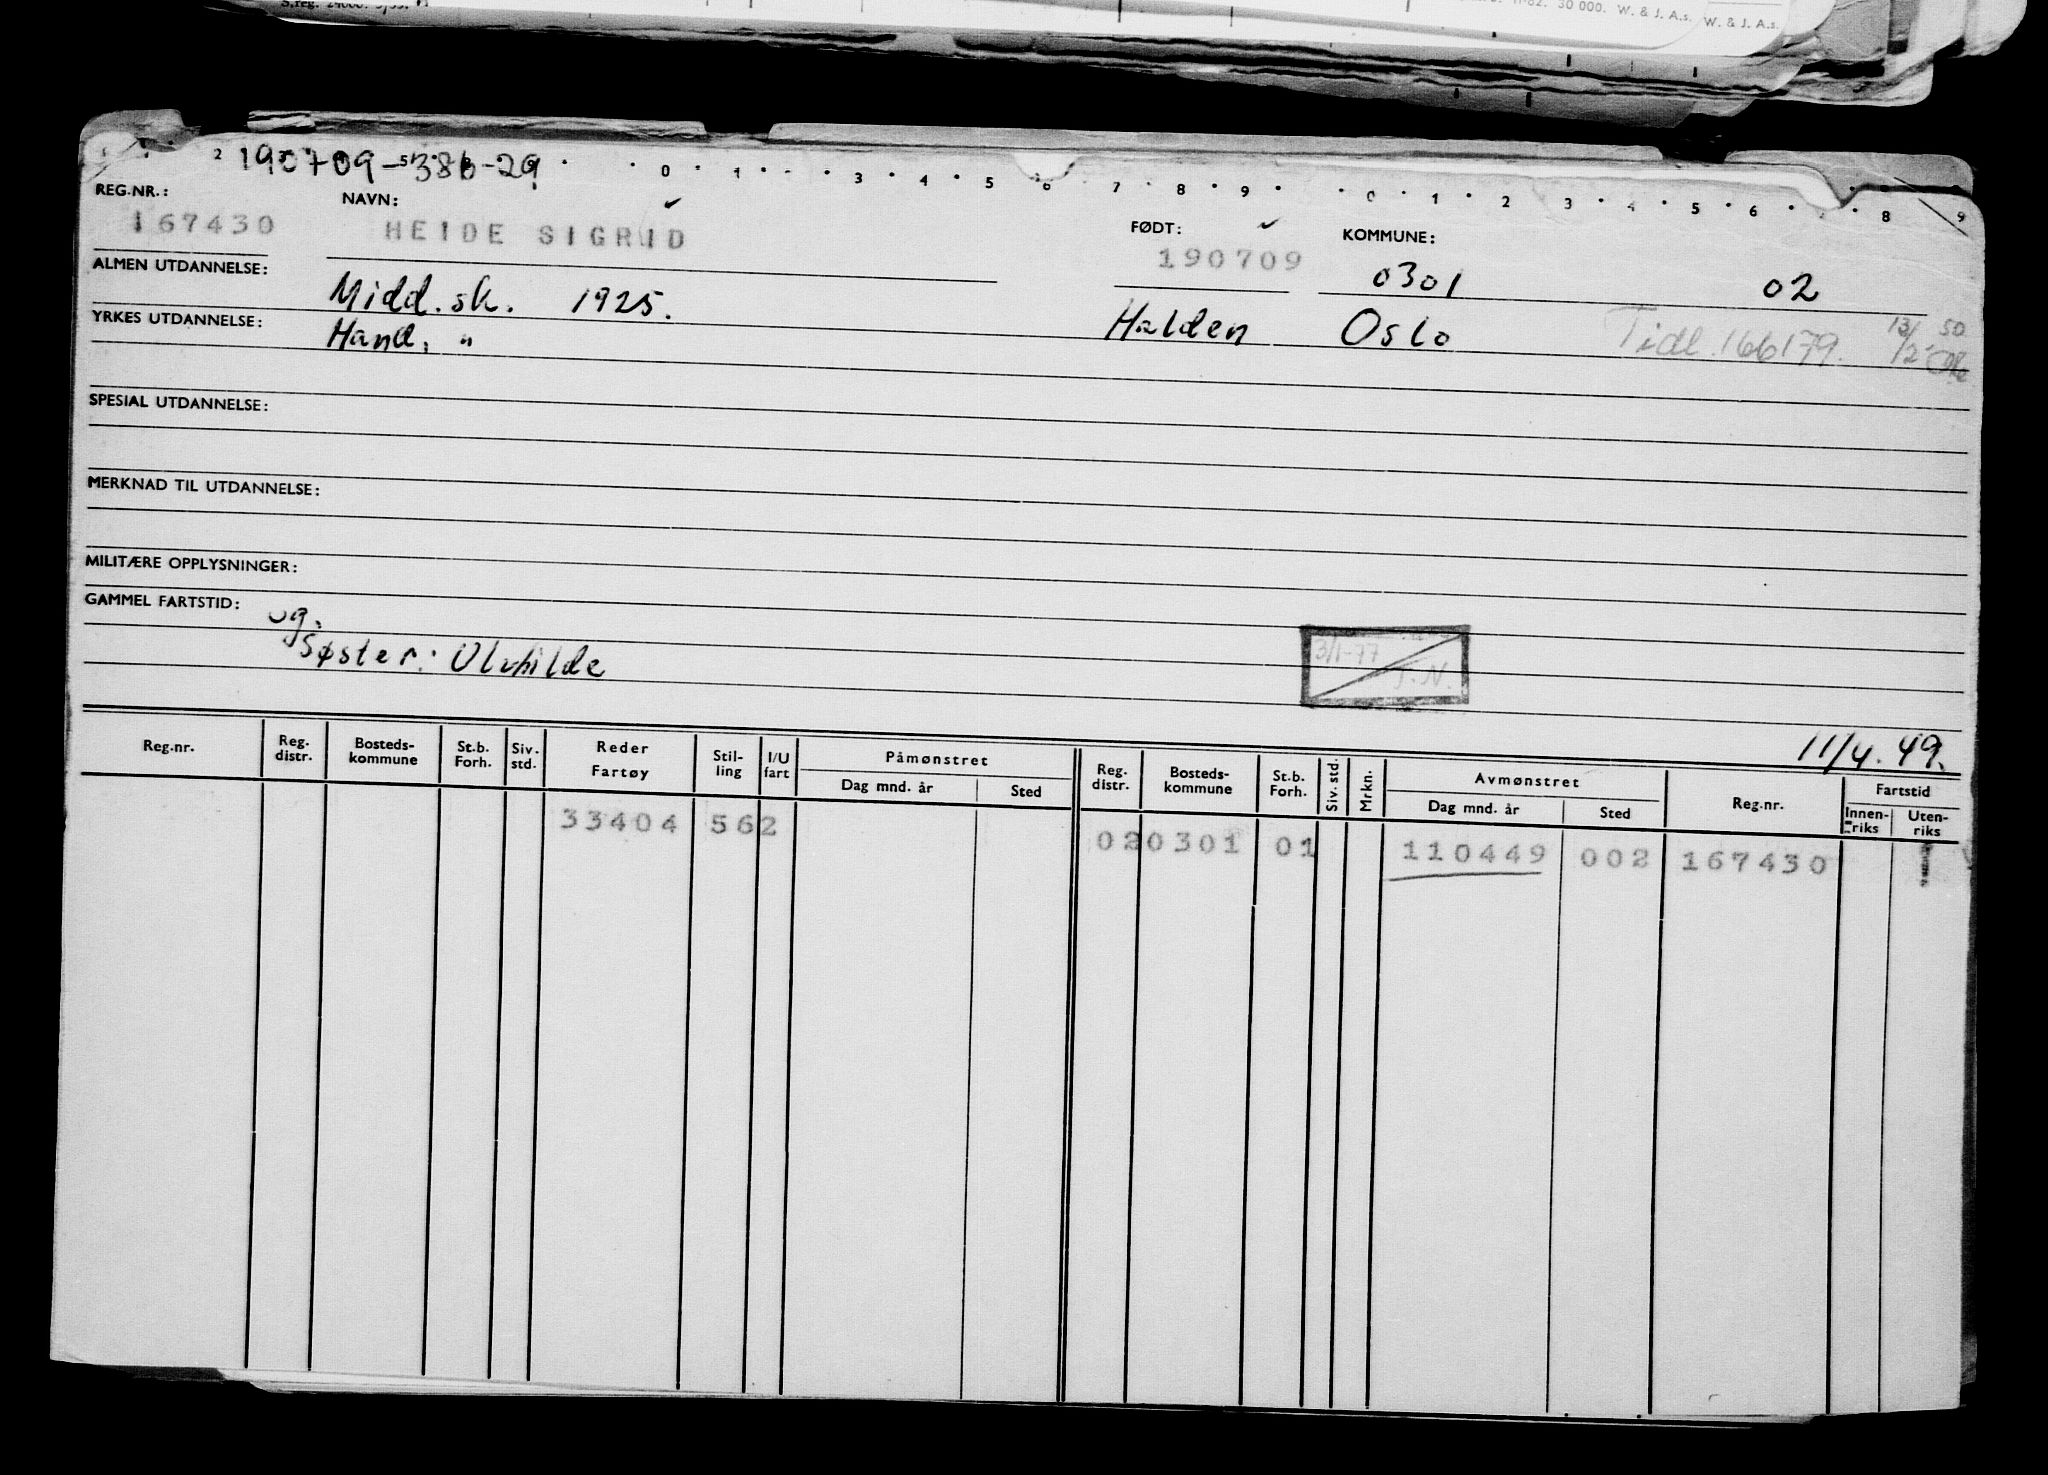 S.reg. 24000.
11-62. 30 000. W. & J. A.s. W. & J. A.s.
2 0 1 3 4 5 6 7 8 9 0 1 2 3 4 5 6 8 9
190709-38629
REG.NR.: NAVN: FØDT: KOMMUNE:
167430 HEIDE SIGRID 190709 0301 02
ALMEN UTDANNELSE: Midd.sk. 1925. Halden Oslo Tidl. 166179. 13/12-50
YRKES UTDANNELSE: Hand. "
SPESIAL UTDANNELSE:
MERKNAD TIL UTDANNELSE:
MILITÆRE OPPLYSNINGER:
GAMMEL FARTSTID: Ug.
Søster: Olvhilde
3/1-77 T.N.
11/4.49.
Reg.nr. Reg. distr. Bosteds-kommune St.b. Forh. Siv. std. Reder Fartøy Stil-ling I/U fart Påmønstret Dag mnd. år Sted Reg. distr. Bosteds-kommune St.b. Forh. Siv. std. Mrkn. Avmønstret Dag mnd. år Sted Reg.nr. Fartstid Innen-riks Uten-riks
33404 562 02 0301 01 110449 002 167430